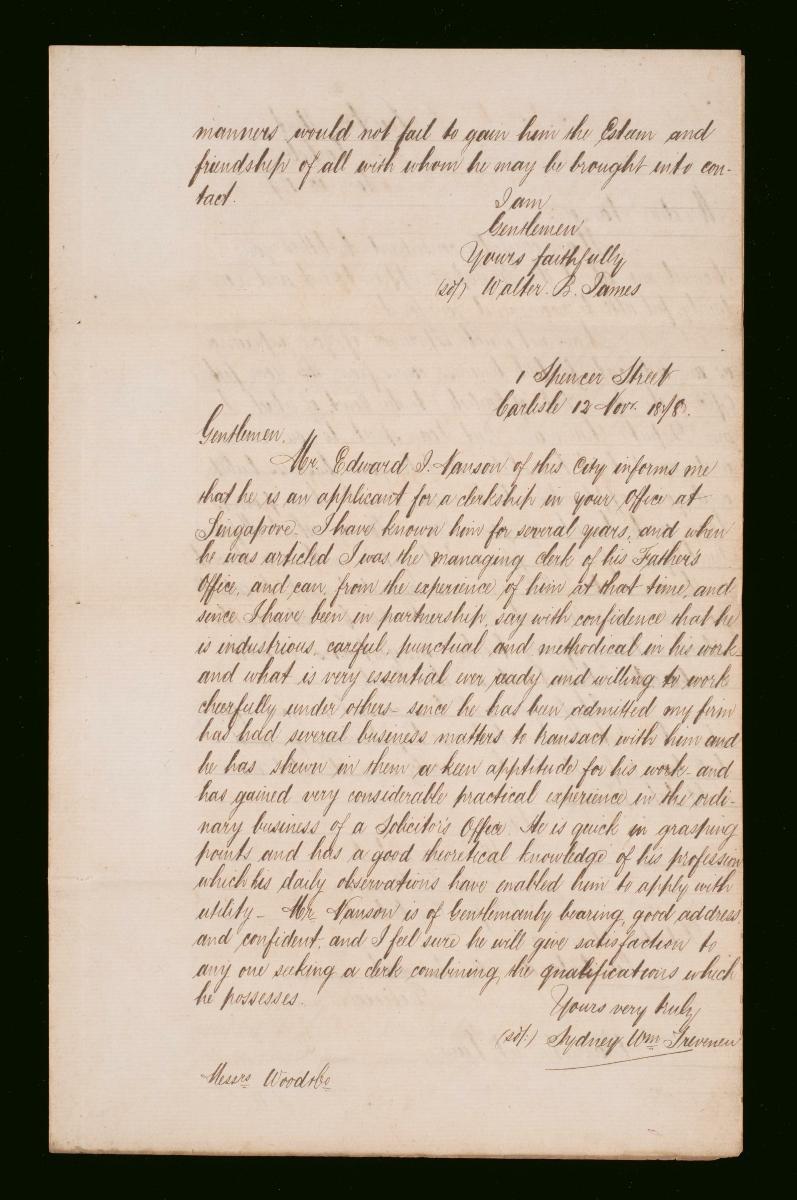 manners would not fail to gain him the Esteem and
friendship of all with whom he may be brought into con-
tact.
I am
Gentlemen
Yours faithfully
(sd/) Walter. B. James
1 Spencer Street
Carlisle 12 Novr. 1878.
Gentlemen.
Mr. Edward J. Nanson of this City informs me
that he is an applicant for a clerkship in your Office at
Singapore. I have known him for several years, and when
he was articled I was the managing clerk of his Father's
Office, and can, from the experience of him at that time, and
since I have been in partnership, say with confidence that he
is industrious, careful, punctual and methodical in his work
and what is very essential ever ready and willing to work
cheerfully under others - since he has been admitted my firm
has had several business matters to transact with him and
he has shewn in them a keen apptitude for his work - and
has gained very considerable practical experience in the ordi-
nary business of a Solicitor's Office. He is quick in grasping
points and has a good theoretical knowledge of his profession
which his daily observations have enabled him to apply with
utility - Mr. Nanson is of Gentlemanly bearing, good address
and confident, and I feel sure he will give satisfaction to
any one seeking a clerk combining the qualifications which
he possesses.
Yours very truly
(sd/.) Sydney Wm. Trevenen
Messrs Wood & Co